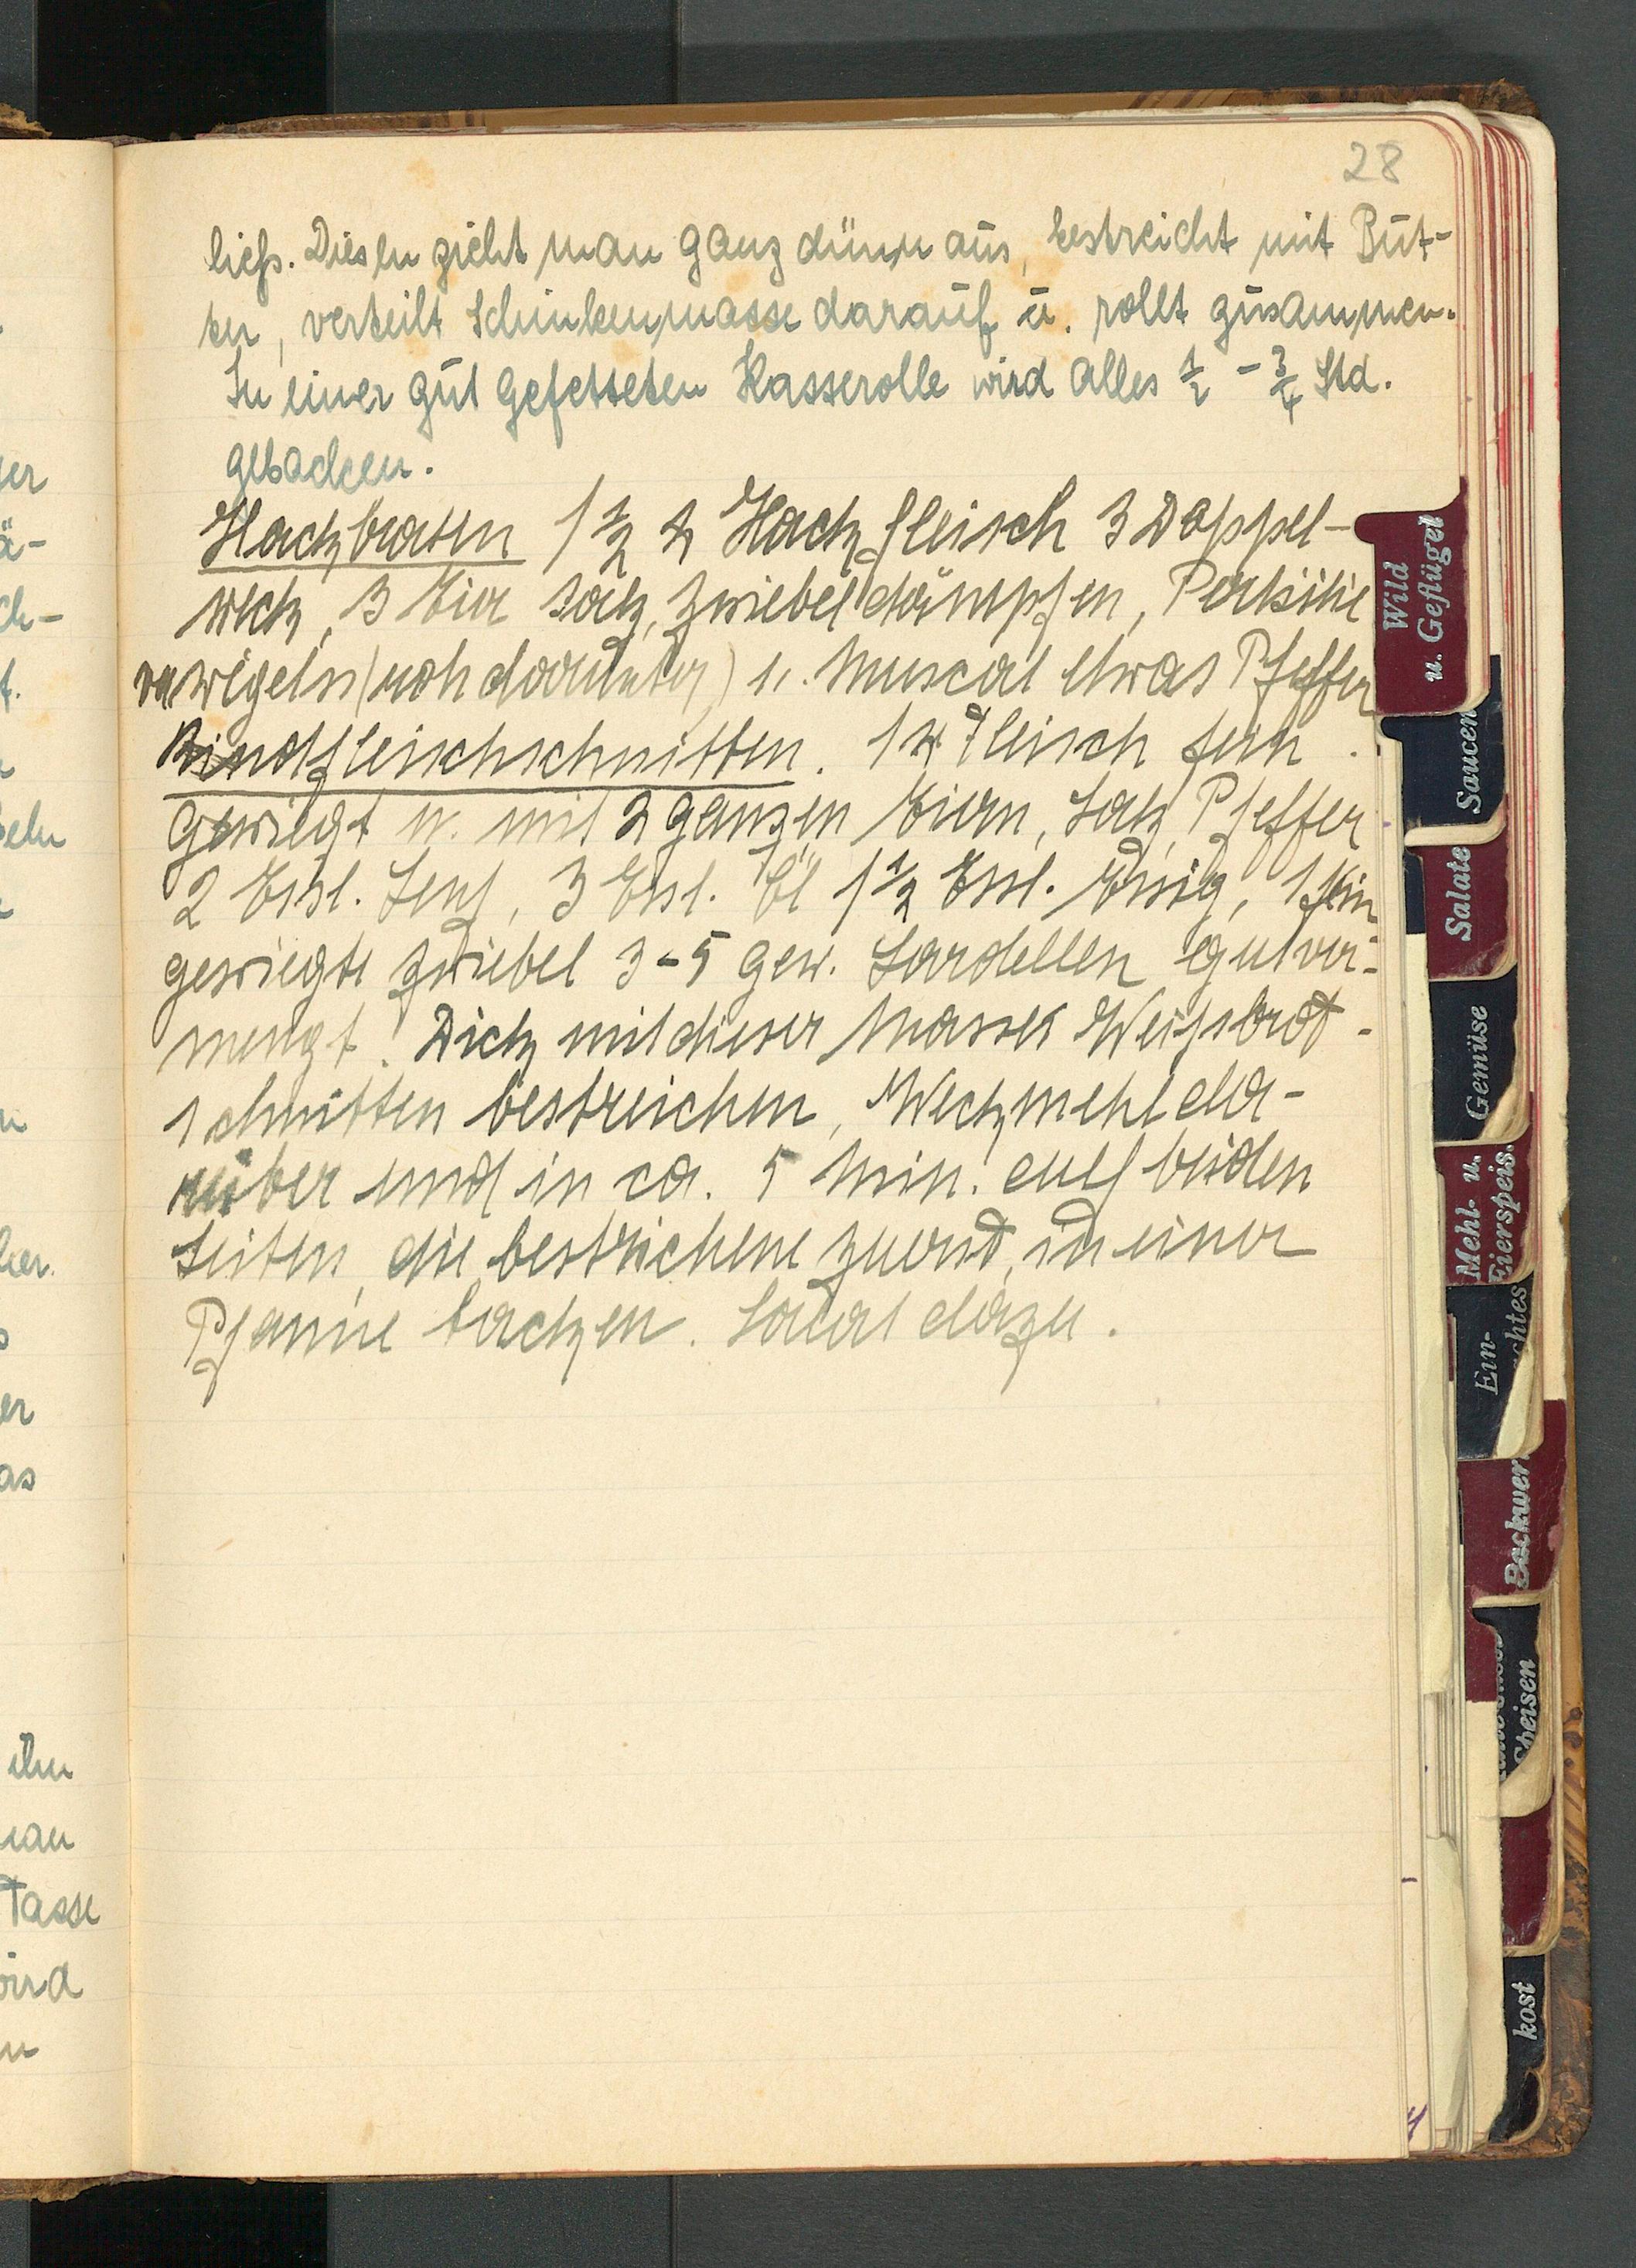 28
ließ. Diesen zieht man ganz dünn aus, bestreicht mit But-
ter, verteilt Schinkenmasse darauf u. rollt zusammen.
In einer gut gefetteten Kasserolle wird alles ½ - ¾ Std.
gebacken.
Hackbraten 1½ ℔ Hackfleisch 3 Doppel-
weck, 3 Eier Salz, Zwiebel dämpfen, Petersilie
wigeln (roh darunter) u. Muscat etwas Pfeffer
Rindfleischschnitten. 1 ℔ Fleisch fein
gewiegt u. mit 2 ganzen Eiern, Salz, Pfeffer
2 Essl. Senf, 3 Essl. Öl 1½ Essl. Essig, 1 fein
gewiegte Zwiebel 3-5 gew. Sardellen gut ver-
mengt. Dick mit dieser Masse Weißbrot-
schnitten bestreichen, Weckmehl da-
rüber und in ca. 5 Min. auf beiden
Seiten, die bestrichene zuerst, in einer
Pfanne backen. Salat dazu.
Wild
u. Geflügel
Saucen
Salate
Gemüse
Mehl- u.
Eierspeis.
Ein-
chtes
Backwer
Speisen
kost
er
ä-
ch-
t.
eln
er
as
ihn
man
Tasse
wird